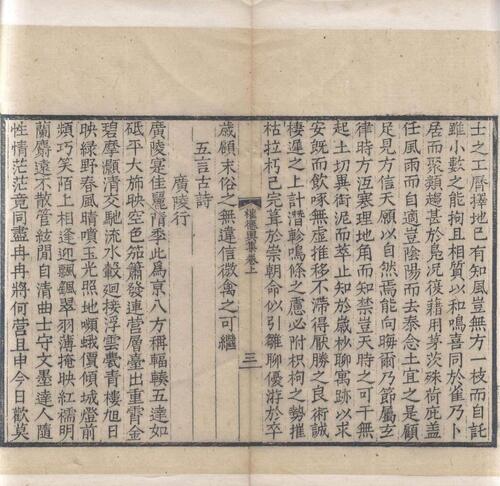 士之工曆擇地已有知風豈無方一枝而自託
雖小數之能拘且相質以和鳴喜同於雀乃卜
居而聚類趨甚於鳧況復藉用茅茨殊荷庇盖
任風雨而自適豈陰陽而去泰念土宜之是顧
足見方信天願以自然焉能向晦爾乃節屬玄
律時方沍寒理地角而知禁豈天時之可干無
起土切異衒泥而萃止知於歲杪聊寓跡以求
安既而飲啄無虛推移不滯得厭勝之良術誠
棲遲之上計潛軫鳴條之應必附枳枸之勢摧
枯拉朽已完葺於崇朝命似引雛聊優游於卒
權德輿集卷上 三
歲顧末俗之無違信微禽之可繼
五言古詩
廣陵行
廣陵寔佳麗隋季此爲京八方稱輻輳五達如
砥平大旆映空色笳簫發連營層臺出重霄金
碧摩顥清交馳流水轂迴接浮雲甍青樓旭日
映綠野春風晴噴玉光照地顰蛾價傾城燈前
頻巧笑陌上相逢迎飄飖翠羽薄掩映紅襦明
蘭麝遠不散管絃閒自清曲士守文墨達人隨
性情茫茫竟同盡冉冉將何營且申今日歡莫